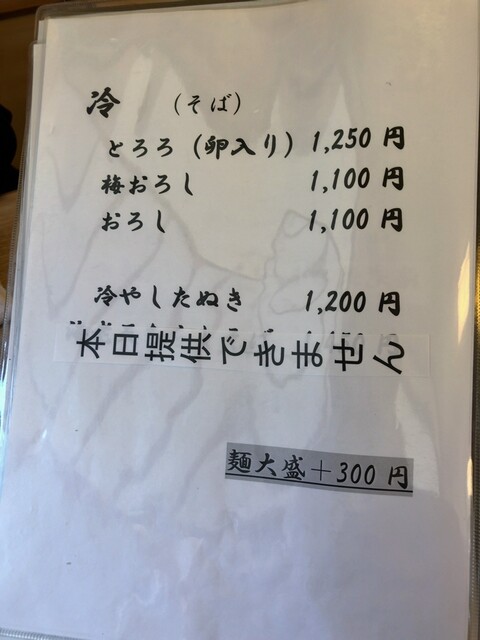 冷 （そば）
とろろ（卵入り） 1,250 円
梅おろし 1,100 円
おろし 1,100 円
冷やしたぬき 1,200 円
本日提供できません
麺大盛＋300 円